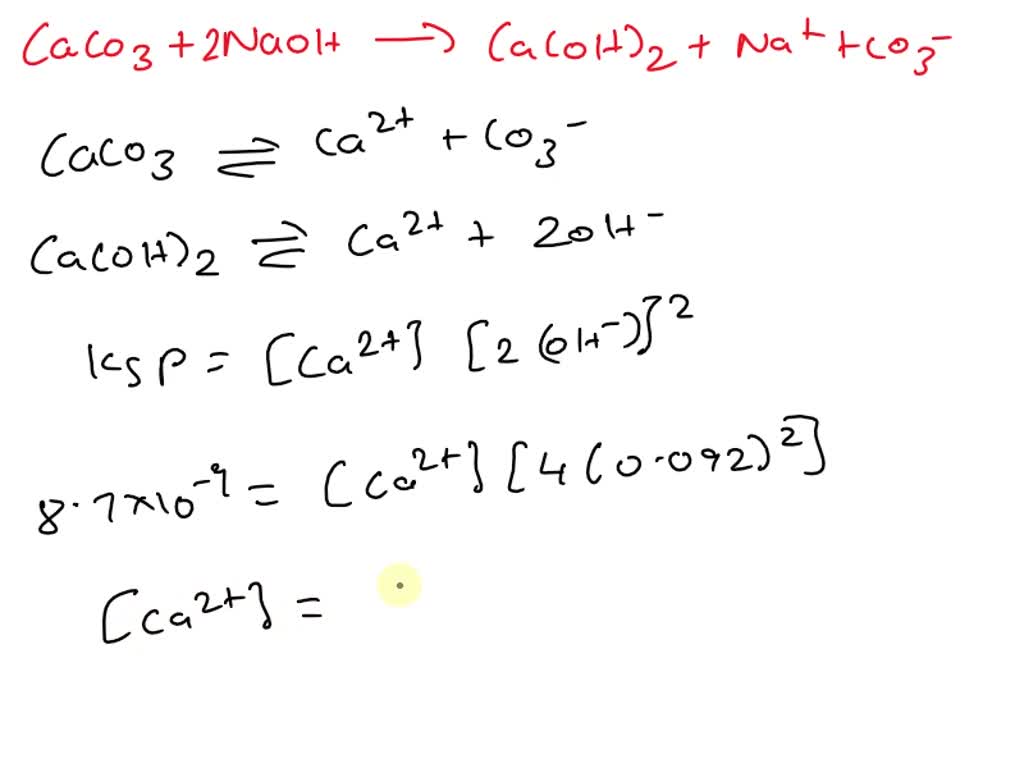 CaCO3 + 2NaOH → Ca(OH)2 + Na⁺ + CO3⁻
CaCO3 ⇌ Ca²⁺ + CO3⁻
Ca(OH)2 ⇌ Ca²⁺ + 2OH⁻
Ksp = [Ca²⁺] [2(OH⁻)]²
8.7×10⁻⁹ = [Ca²⁺] [4(0.092)²]
[Ca²⁺] =